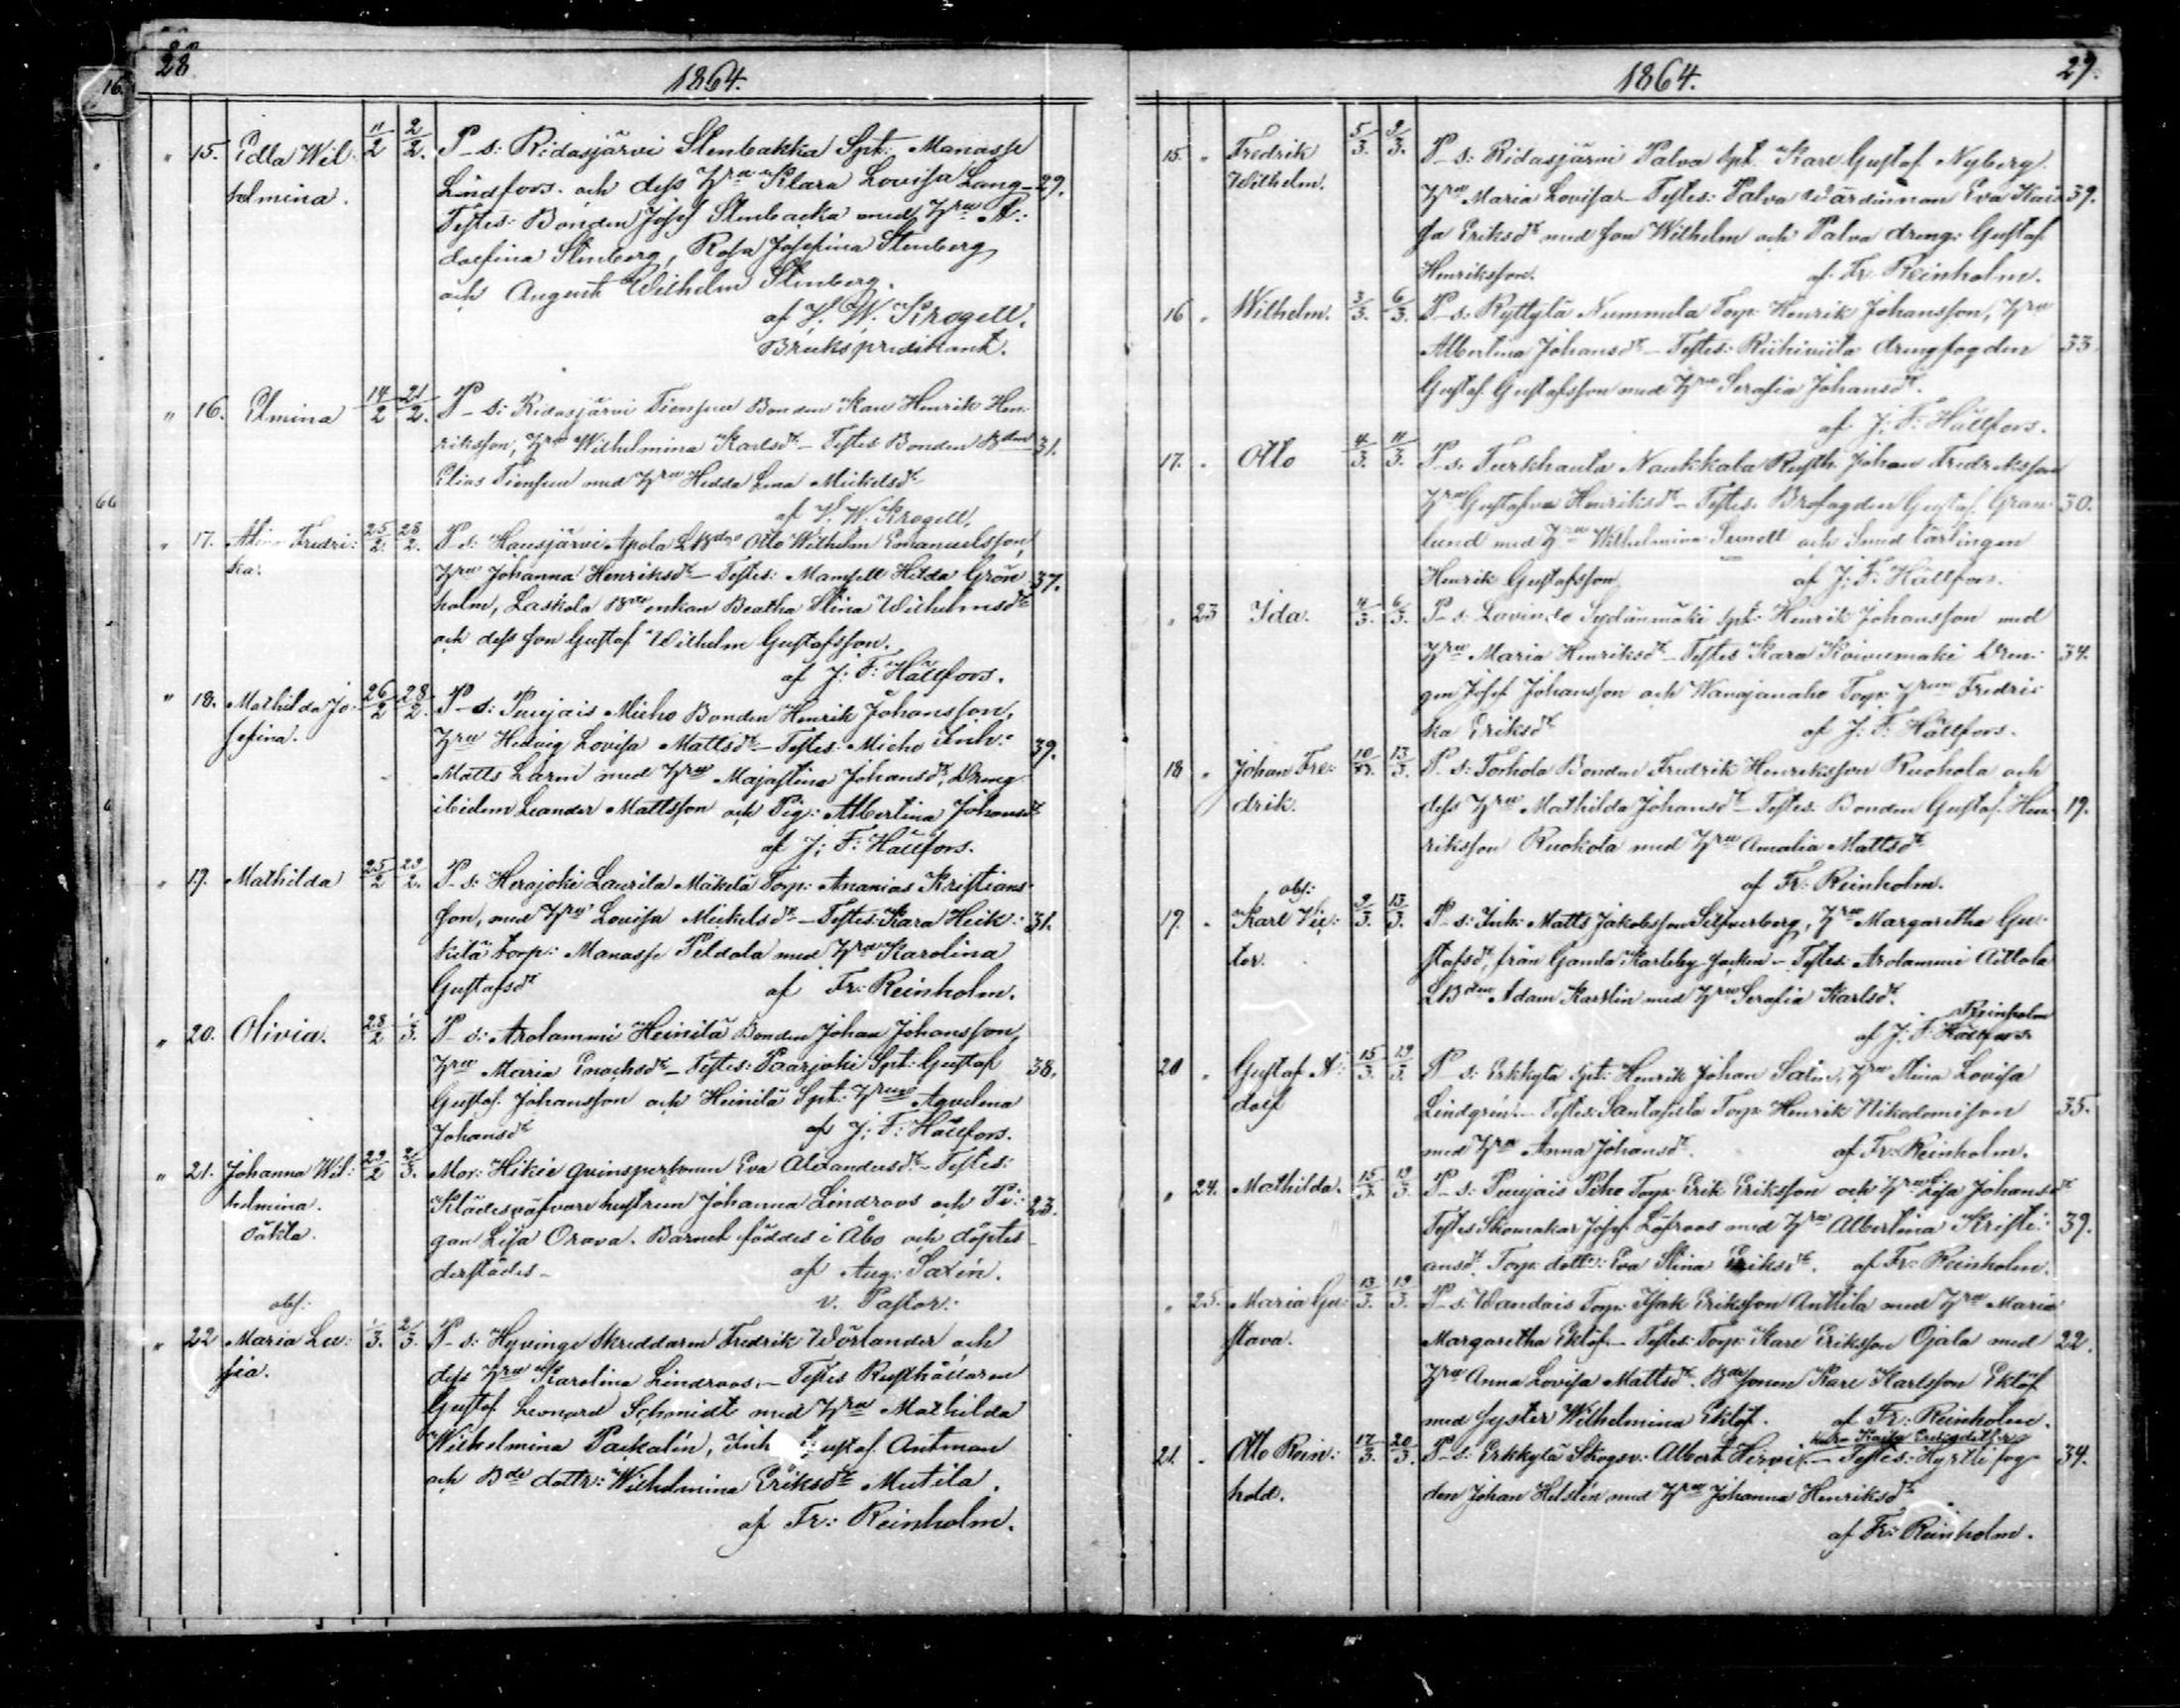 28
1864.
16.
" 15. Edla Wil- 11/2 2/2. P_s: Ridasjärvi Stenbakka Spt: Manasse
helmina. Lindfors och dess Hru Klara Lovisa Lang_ 29.
Testes: Bonden Josef Stenbacka med Hru A:
dolfina Stenberg, Rosa Josefina Stenberg
och August Wilhelm Stenberg.
af V. W. Krogell.
Brukspredikant.
" 16. Elmina 14/2 21/2. P_s: Ridasjärvi Tiensuu Bonden Karl Henrik Hen-
riksson, Hru Wilhelmina Karlsdr _ Testes Bonden 31.
Elias Tiensuu med Hru Hedda Lena Mickelsdr
af V. W. Krogell.
" 17. Fredri: 25/2. 28/2. P_s: Hausjärvi Apola Otto Wilhelm Emanuelsson,
ka. Hru Johanna Henriksdr _ Testes: Mamsell Hilda Grön 37.
holm, Laskola enkan Beatha Stina Wilhelmsdr
och dess son Gustaf Wilhelm Gustafsson.
af J: F: Hällfors.
" 18. Mathilda Jo- 26/2 28/2. P_s: Puujais Mieho Bonden Henrik Johansson,
sefina. Hru Hedvig Lovisa Mattsdr _ Testes: Mieho Inh: 39.
Matts Larm med Hru Majastina Johansdr, Dreng
ibidem Leander Mattsson och Pig: Albertina Johansdr
af J: F: Hällfors.
" 19. Mathilda 25/2 29/2. P_s: Herajoki Laurila Mäkelä Torp: Ananias Kristians-
son, med Hru Lovisa Mickelsdr _ Testes: Kara Heik: 31.
kilä torp: Manasse Peldola med Hru Karolina
Gustafsdr af Fr: Reinholm.
" 20. Olivia. 28/2 1/3. P_s: Arolammi Heinilä Bonden Johan Johansson,
Hru Maria Enochsdr _ Testes: Paarjoki Spt: Gustaf 38.
Gustaf Johansson och Heinilä Spt: Hrun Agvelina
Johansdr af J: F: Hällfors.
" 21. Johanna Wil: 29/2 2/3. Mor: Hikie qvinspersonen Eva Alexandersdr _ Testes:
helmina. Klädesväfvare hustrun Johanna Lindroos och Pi: 23.
oäkta. gan Lisa Orava. Barnet föddes i Åbo och döptes
derstädes_ af Aug: Saxén.
obs: v. Pastor.
" 22 Maria Lu: 1/3. 2/3. P_s: Hyvinge Skreddaren Fredrik Wörlander och
sia. dess Hru Karolina Lindroos. _ Testes Rusthållaren
Gustaf Leonard Schmidt med Hru Mathilda
Wilhelmina Packalén, Inh Gustaf Antman
och Bde dottr: Wilhelmina Eriksdr Mutila.
af Fr: Reinholm.
1864.
29.
15. " Fredrik 5/3. 9/3. P_s: Ridasjärvi Palva Spt. Karl Gustaf Nyberg.
Wilhelm. Hru Maria Lovisa _ Testes: Palva Värdinnan Eva Kai 39.
sa Eriksdr med son Wilhelm och Palva dreng: Gustaf
Henriksson. af Fr: Reinholm.
16 " Wilhelm. 3/3. 6/3. P_s. Ryttylä Nummela Torp: Henrik Johansson, Hru
Albertina Johansdr _ Testes: Riihiviita drengfogden 33.
Gustaf Gustafsson med Hru Serafia Johansdr.
af J: F: Hällfors.
17. " Otto 4/3. 11/3. P_s. Turkhauta Naukkala Rusth. Johan Fredriksson
Hru Gustafva Henriksdr _ Testes. Brofogden Gustaf Gran- 30.
lund med Hru Wilhelmina Sunell och Smed lärlingen
Henrik Gustafsson af J: F: Hällfors.
" 23 Ida. 4/3. 6/3. P_s: Lavinto Sydänmäki Spt: Henrik Johansson med
Hru Maria Henriksdr _ Testes Kara Koivumäki Dren: 34.
gen Josef Johansson och Wanajanaho Torp: Hrun Fredri:
ka Eriksdr af J: F: Hällfors.
18 " Johan Fre: 10/3. 13/3. P_s: Torhola Bonden Fredrik Henriksson Ruohola och
drik. dess Hru Mathilda Johansdr _ Testes. Bonden Gustaf Hen- 19.
riksson Ruokola med Hru Amalia Mattsdr
af Fr: Reinholm.
obs:
19. " Karl Vic: 9/3. 13/3. P_s: Inh: Matts Jakobsson Silfverberg, Hru Margaretha Gu:
tor. stafsdr, från Gamla Karleby socken _ Testes. Arolammi Aittola
Adam Karstin med Hru Serafia Karlsdr.
Reinholm
af J: F: Hällfors
20 " Gustaf A: 15/3. 19/3. P_s: Erkkylä Spt: Henrik Johan Salin, Hru Stina Lovisa
dolf Lindgrén. _ Testes: Torp: Henrik Nikodemisson 35.
med Hru Anna Johansdr. af Fr: Reinholm.
" 24. Mathilda. 15/3. 19/3. P_s: Puujais Piho Torp: Erik Eriksson och Hru Lisa Johansdr
Testes Skomakar Josef Löfroos med Hru Albertina Kristi: 39.
ansdr, Torp: dottr: Eva Stina Eriksdr. af Fr: Reinholm.
" 25. Maria Gu: 13/3. 19/3. P_s: Wandais Torp: Isak Eriksson Anttila med Hru Maria
stava. Margaretha Eklöf. _ Testes: Torp: Karl Eriksson Ojala med 22.
Hru Anna Lovisa Mattsdr. Bdesonen Karl Karlsson Eklöf
med syster Wilhelmina Eklöf. af Fr: Reinholm.
21. " Otto Rein: 17/3. 20/3. P_s: Erkkylä Skogsv: Albert _ Testes: Hyrtti fog- 34.
hold. den Johan Helstén med Hru Johanna Henriksdr
af Fr: Reinholm.